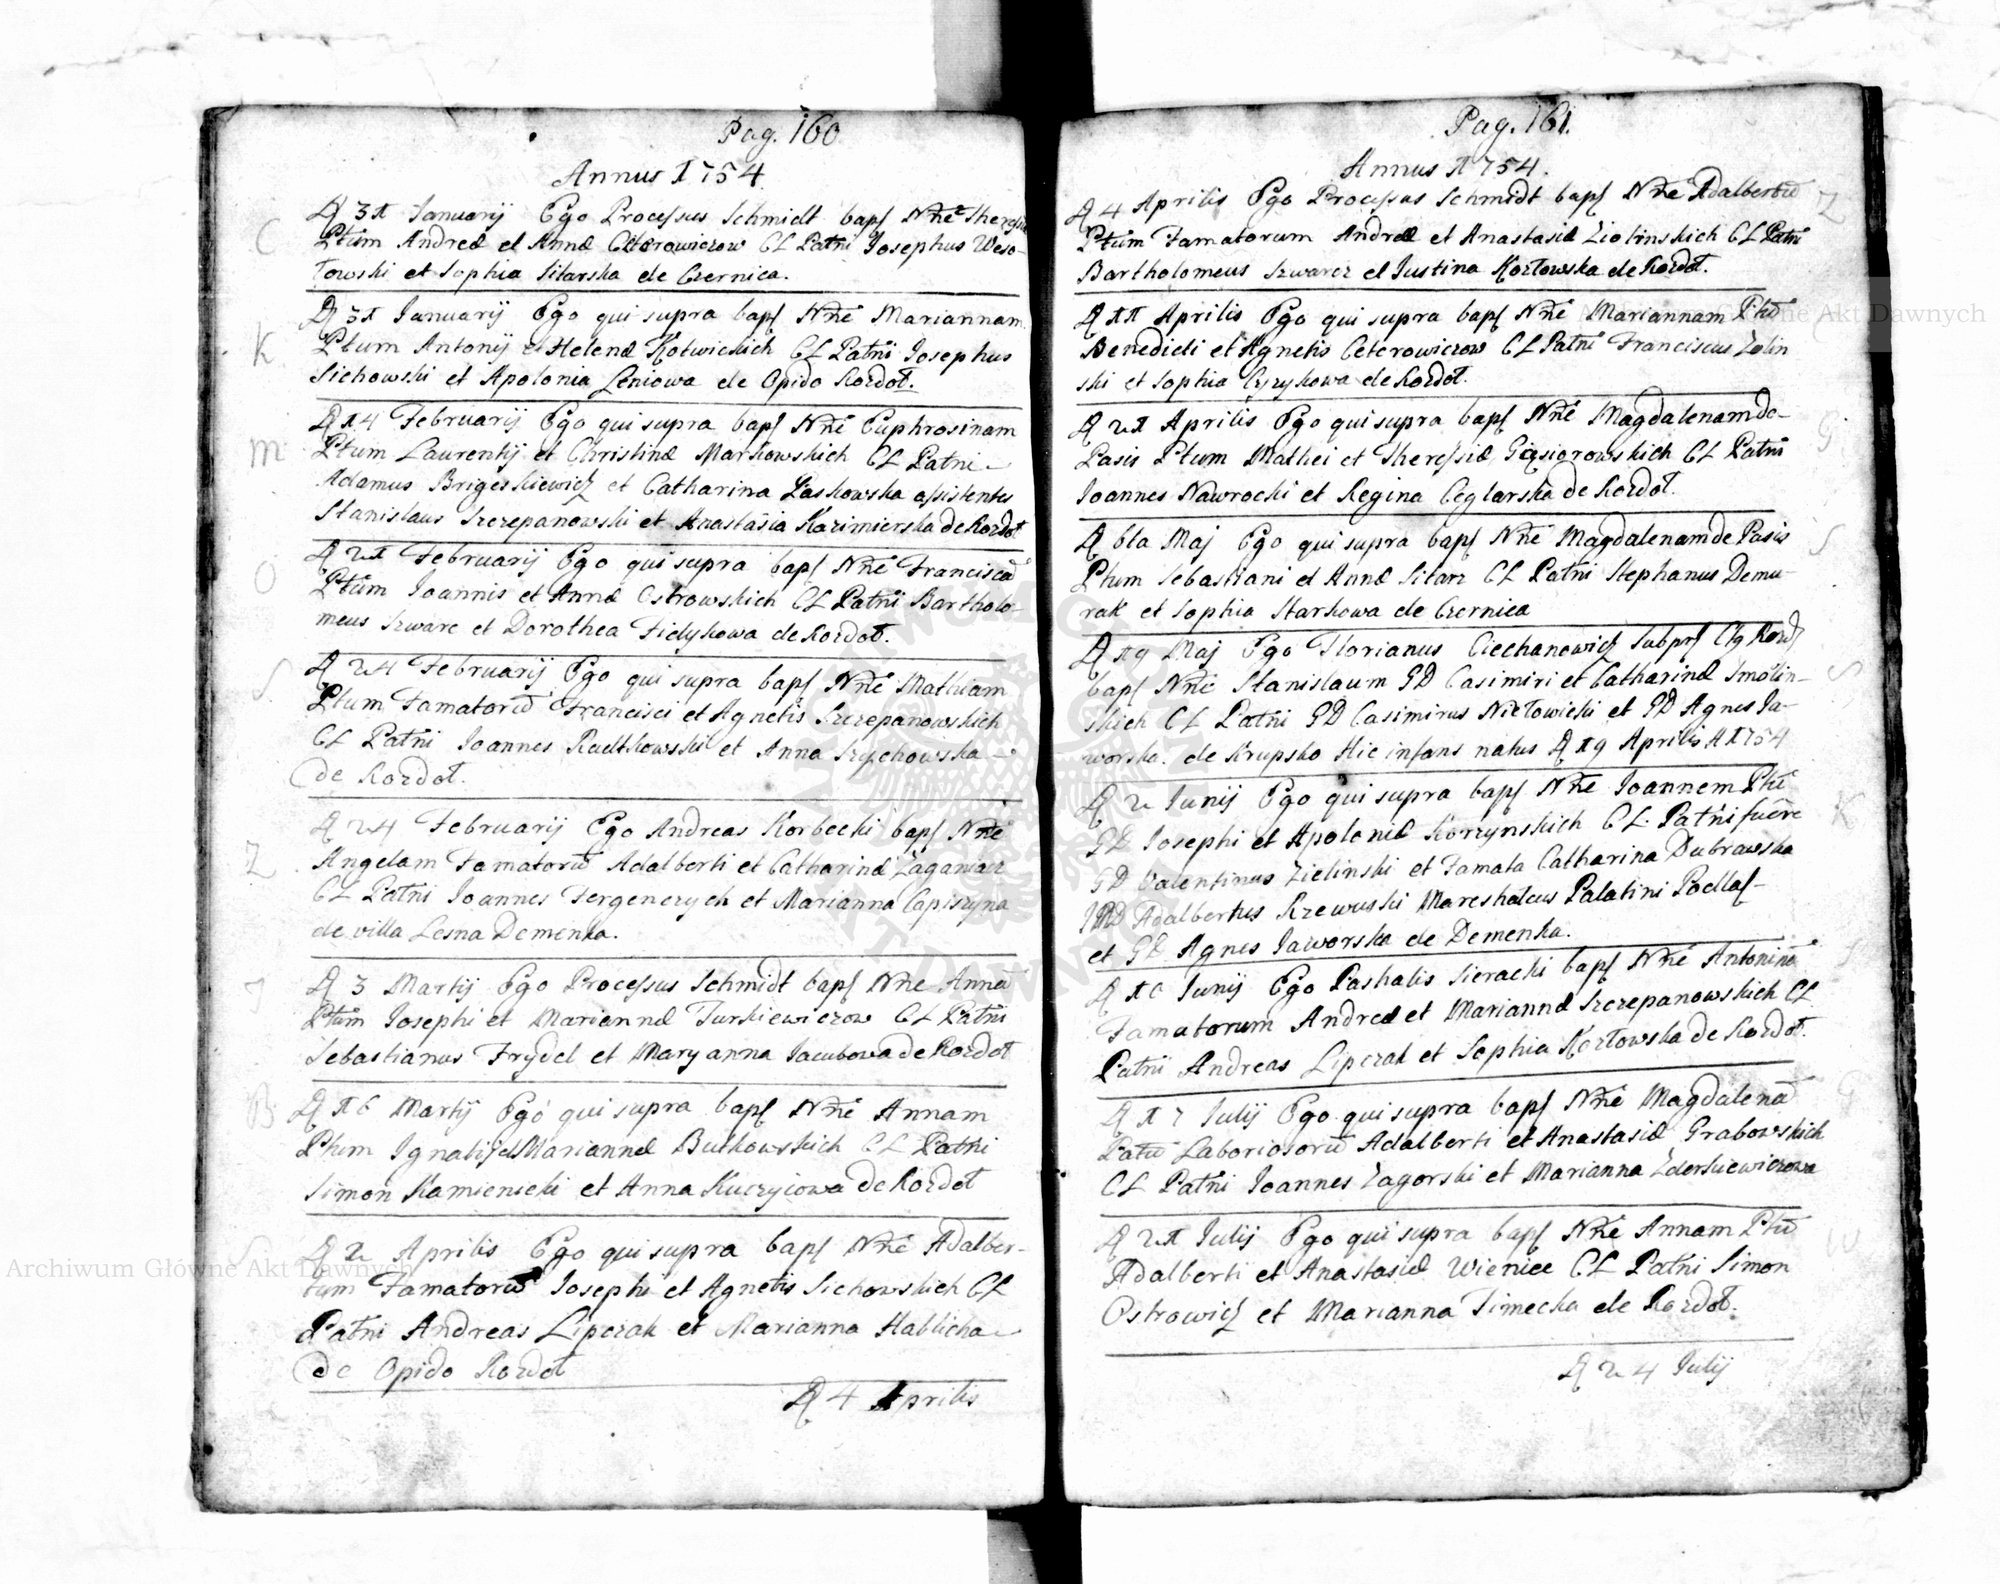 Pag. 160
Annus 1754
C
D 31 Januarij Ego Processus Schmidt bapſ Nn̄e Theresiā
Ptūm Andreæ et Annæ Ceterowiczow CL Patn̄i Josephus Weso-
łowski et Sophia Sitarska de Czernica.
K
D 31 Januarij Ego qui supra bapſ Nn̄e Mariannam
Ptum Antonij et Helenæ Kotwickich CL Patn̄i Josephus
Sichowski et Apolonia Leniowa de Opido Rozdoł.
M
D 14 Februarij Ego qui supra bapſ Nn̄e Euphrosinam
Ptum Laurentij et Christinæ Markowskich CL Patni
Adamus Brigeskiewicz et Catharina Laskowska assistentes
Stanislaus Szczepanowski et Anastasia Kazimierska de Rozdoł
O
D 21 Februarij Ego qui supra bapſ Nn̄e Franciscā
Ptūm Joannis et Annæ Ostrowskich CL Patn̄i Bartholo-
meus Szwarc et Dorothea Fidykowa de Rozdoł.
S
D 24 Februarij Ego qui supra bapſ Nn̄e Mathiam
Ptum Famatorū Francisci et Agnetis Szczepanowskich
CL Patn̄i Joannes Radkowski et Anna Szychowska
de Rozdoł.
Z
D 24 Februarij Ego Andreas Korbecki bapſ Nn̄e
Angelam Famatorū Adalberti et Catharinæ Zaganiacz
CL Patn̄i Joannes Fergenczych et Marianna Capiszyna
de villa Lesna Demenka.
J
D 3 Martij Ego Processus Schmidt bapſ Nn̄e Annā
Ptūm Josephi et Mariannæ Jurkiewiczow CL Patn̄i
Sebastianus Frydel et Maryanna Jacubowa de Rozdoł
B
D 16 Martij Ego qui supra bapſ Nn̄e Annam
Ptum Ignatij et Mariannæ Butkowskich CL Patni
Simon Kamienicki et Anna Kuczyiowa de Rozdoł
S
D 2 Aprilis Ego qui supra bapſ Nn̄e Adalber-
tum Famatorū Josephi et Agnetis Sichowskich CL
Patn̄i Andreas Lipczak et Marianna Hablicha
de Opido Rozdoł
D 4 Aprilis
Pag. 161.
Annus 1754.
Z
D 4 Aprilis Ego Processus Schmidt bapſ Nn̄e Adalbertū
Ptūm Famatorum Andreæ et Anastasiæ Ziolinskich CL Patn̄i
Bartholomeus Szwarcz et Justina Kozłowska de Rozdoł.
D 11 Aprilis Ego qui supra bapſ Nn̄e Mariannam Ptū
Benedicti et Agnetis Ceterowiczow CL Patn̄i Franciscus Zolin
ski et Sophia Czyzykowa de Rozdoł.
G
D 21 Aprilis Ego qui supra bapſ Nn̄e Magdalenam de
Pasis Ptum Mathei et Theressiæ Gięsiorowskich CL Patn̄i
Joannes Nawrocki et Regina Ceglarska de Rozdoł.
S
D 6ta Maj Ego qui supra bapſ Nn̄e Magdalenam de Pasis
Ptum Sebastiani et Annæ Sitarz CL Patn̄i Stephanus Demu-
rak et Sophia Starkowa de Czernica
S
D 19 Maj Ego Florianus Ciechanowicz Subprſ Ctg Rozdſ
bapſ Nn̄e Stanislaum GD Casimiri et Catharinæ Smolin-
skich CL Patn̄i GD Casimirus Niełowicki et GD Agnes Ja-
worska. de Krupsko Hic infans natus D 19 Aprilis A 1754
K
D 2 Junij Ego qui supra bapſ Nn̄e Joannem Ptū
GD Josephi et Apoloniæ Korzynskich CL Patn̄i fuēre
GD Valentinus Zielinski et Famata Catharina Dubrawska
Adalbertus Rzewuski Mareshalcus Palatini Podlaſ-
et GD Agnes Jaworska de Demenka.
S
D 16 Junij Ego Pashalis Sieracki bapſ Nn̄e Antoninā
Famatorum Andreæ et Mariannæ Szczepanowskich CL
Patn̄i Andreas Lipczak et Sophia Kozłowska de Rozdoł.
G
D 17 Julij Ego qui supra bapſ Nn̄e Magdalenā
Patū Laboriosorū Adalberti et Anastasiæ Grabowskich
CL Patn̄i Joannes Zagorski et Marianna Zderkiewiczowa
W
D 21 Julij Ego qui supra bapſ Nn̄e Annam Ptū
Adalberti et Anastasiæ Wieniec CL Patn̄i Simon
Ostrowicz et Marianna Simecka de Rozdoł.
D 24 Julij
Archiwum Główne Akt Dawnych